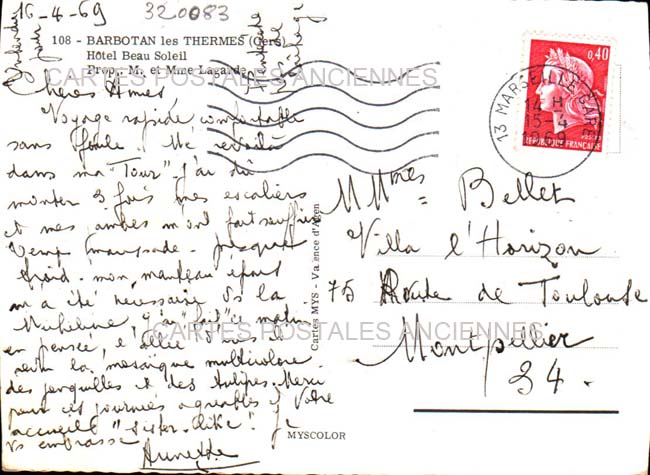 16-4-69
320083
108 - BARBOTAN les THERMES (Gers)
Hôtel Beau Soleil
Prop.: M. et Mme Lagarde
CARTES POSTALES ANCIENNES
Chères Amies
Voyage rapide comfortable
sans foule. Me revoilà
dans ma "Tour" j'ai dû
monter 3 fois mes escaliers
et mes jambes m'ont fait souffrir
Temps maussade - presque
froid - mon manteau épais
m'a été nécessaire ds la
Micheline, j'ai "fait" ce matin
en pensée, l'allée
revu la mosaïque multicolore
des jonquilles et des tulipes. Merci
pour ces journées agréables & votre
accueil "sister-like". Je
vs embrasse
Annette
Cartes MYS - Valence d'Agen
MYSCOLOR
CARTES POSTALES ANCIENNES
0,40
REPUBLIQUE FRANÇAISE
POSTES
13 MARSEILLE GARE
14 H
15-4
1969
M Mmes Bellet
Villa l'Horizon
75 Route de Toulouse
Montpellier
34.